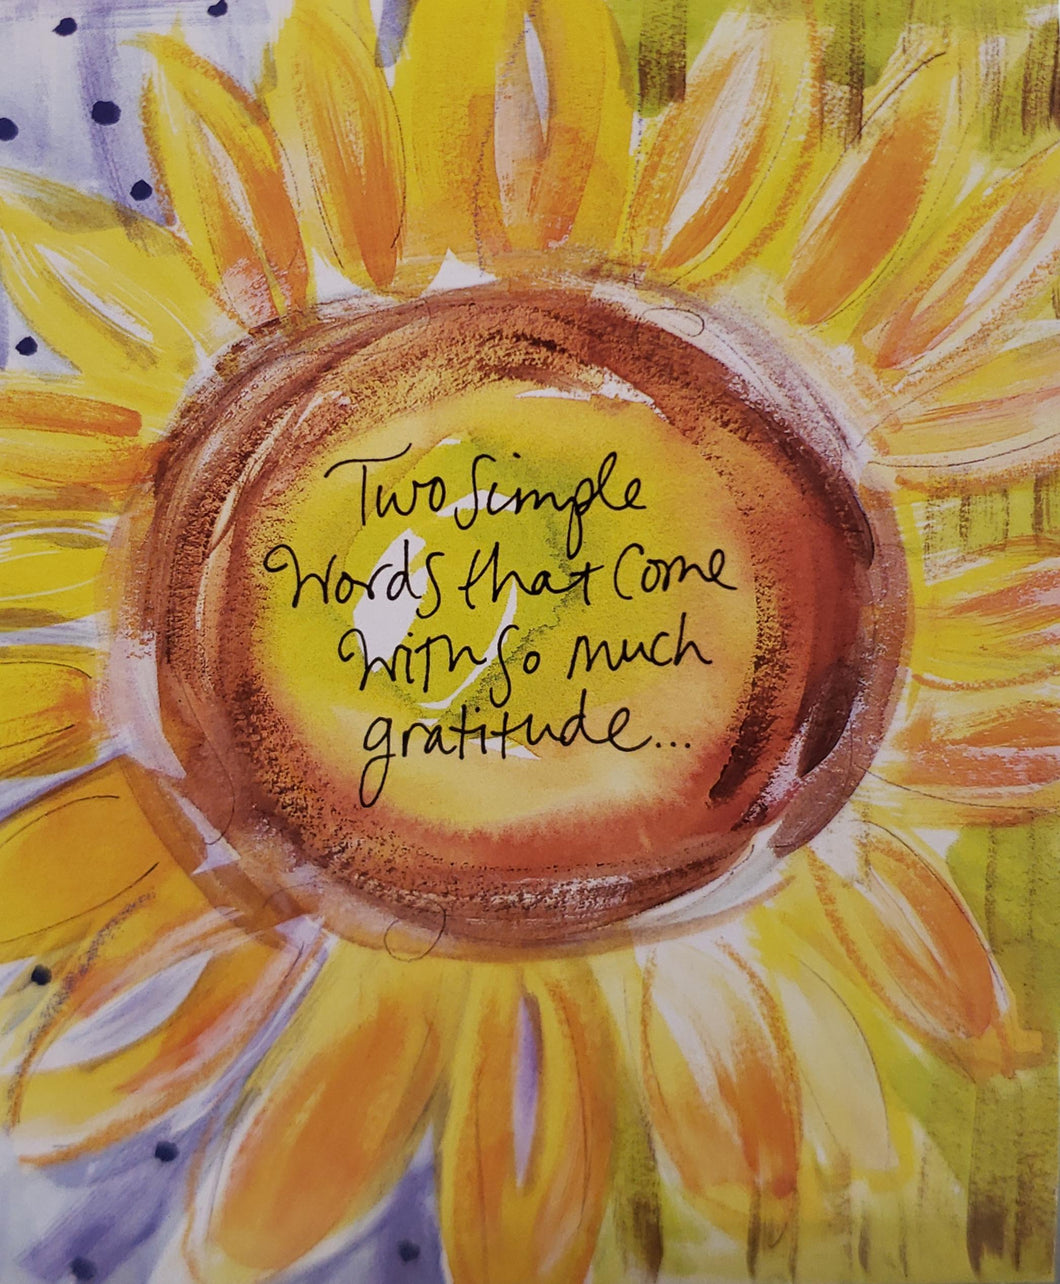 Two simple
Words that come
With so much
gratitude...